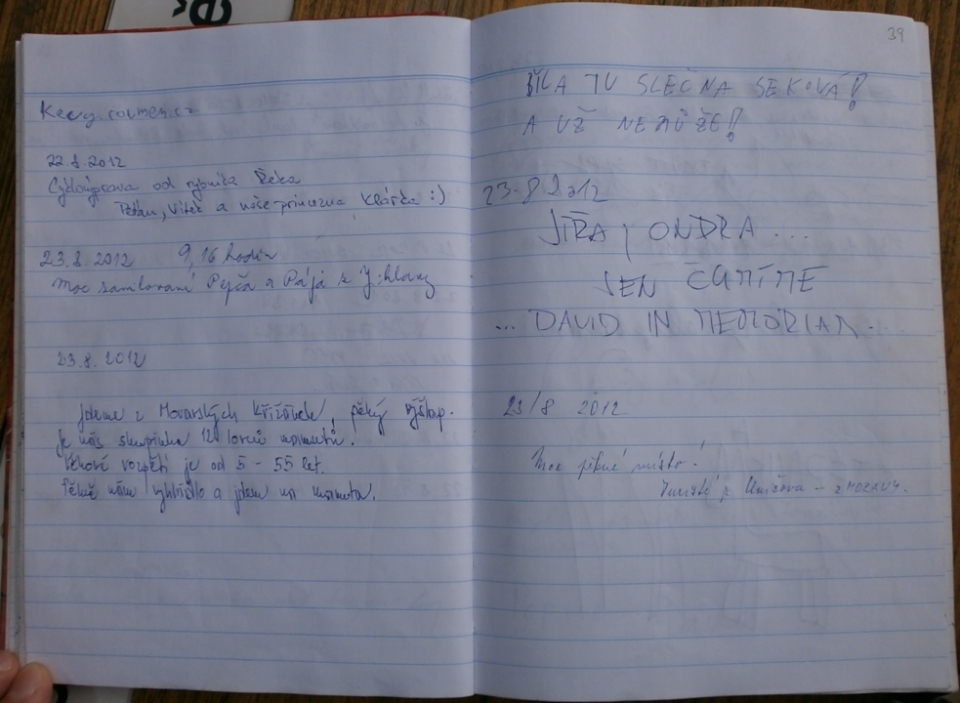 22.8.2012
Cykloúprava od rybníka Řeka
Péťan, Vítek a naše princezna Klárka :)
23.8.2012 9,16 hodin
Moc zamilovaní Pepča a Pája z Jihlavy
23.8. 2012
Jdeme z Moravských Křižánek, pěkný výšlap.
Je nás skupinka 12 lovců mamutů.
Věkové rozpětí je od 5 - 55 let.
Pěkně nám vyhládlo a jdem na mamuta.
39
BYLA TU SLEČNA SEKOVÁ!
A UŽ NEMŮŽE!
23.8 2012
JÍŘA, ONDRA...
JEN ČUMÍME
... DAVID IN MEMORIAM...
23/8 2012
Moc pěkné místo!
Turisté z Uničova - z MORAVY.